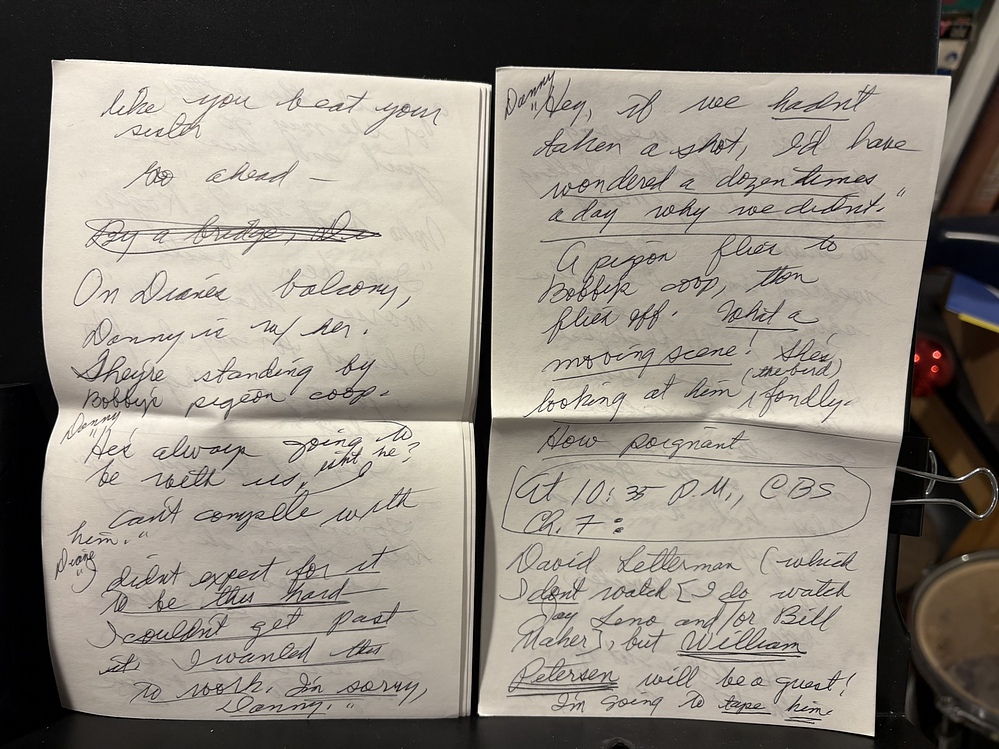 like you beat your
sister
Go ahead —
By a bridge, she
On Diane's balcony,
Danny is w/ her.
They're standing by
Bobby's pigeon coop.
Danny
"He's always going to
be with us, isn't he?
I
can't compete with
him."
Diane
"I
didn't expect for it
to be this hard
I couldn't get past
it. I wanted this
to work. I'm sorry,
Danny."
Danny
"Hey, if we hadn't
taken a shot, I'd have
wondered a dozen times
a day why we didn't."
A pigeon flies to
Bobby's coop, then
flies off. What a
moving scene! She's
(the bird)
looking at him fondly.
How poignant
At 10:35 P.M., CBS
Ch. 7:
David Letterman (which
I don't watch [I do watch
Jay Leno and/or Bill
Maher], but William
Petersen will be a guest!
I'm going to tape him.